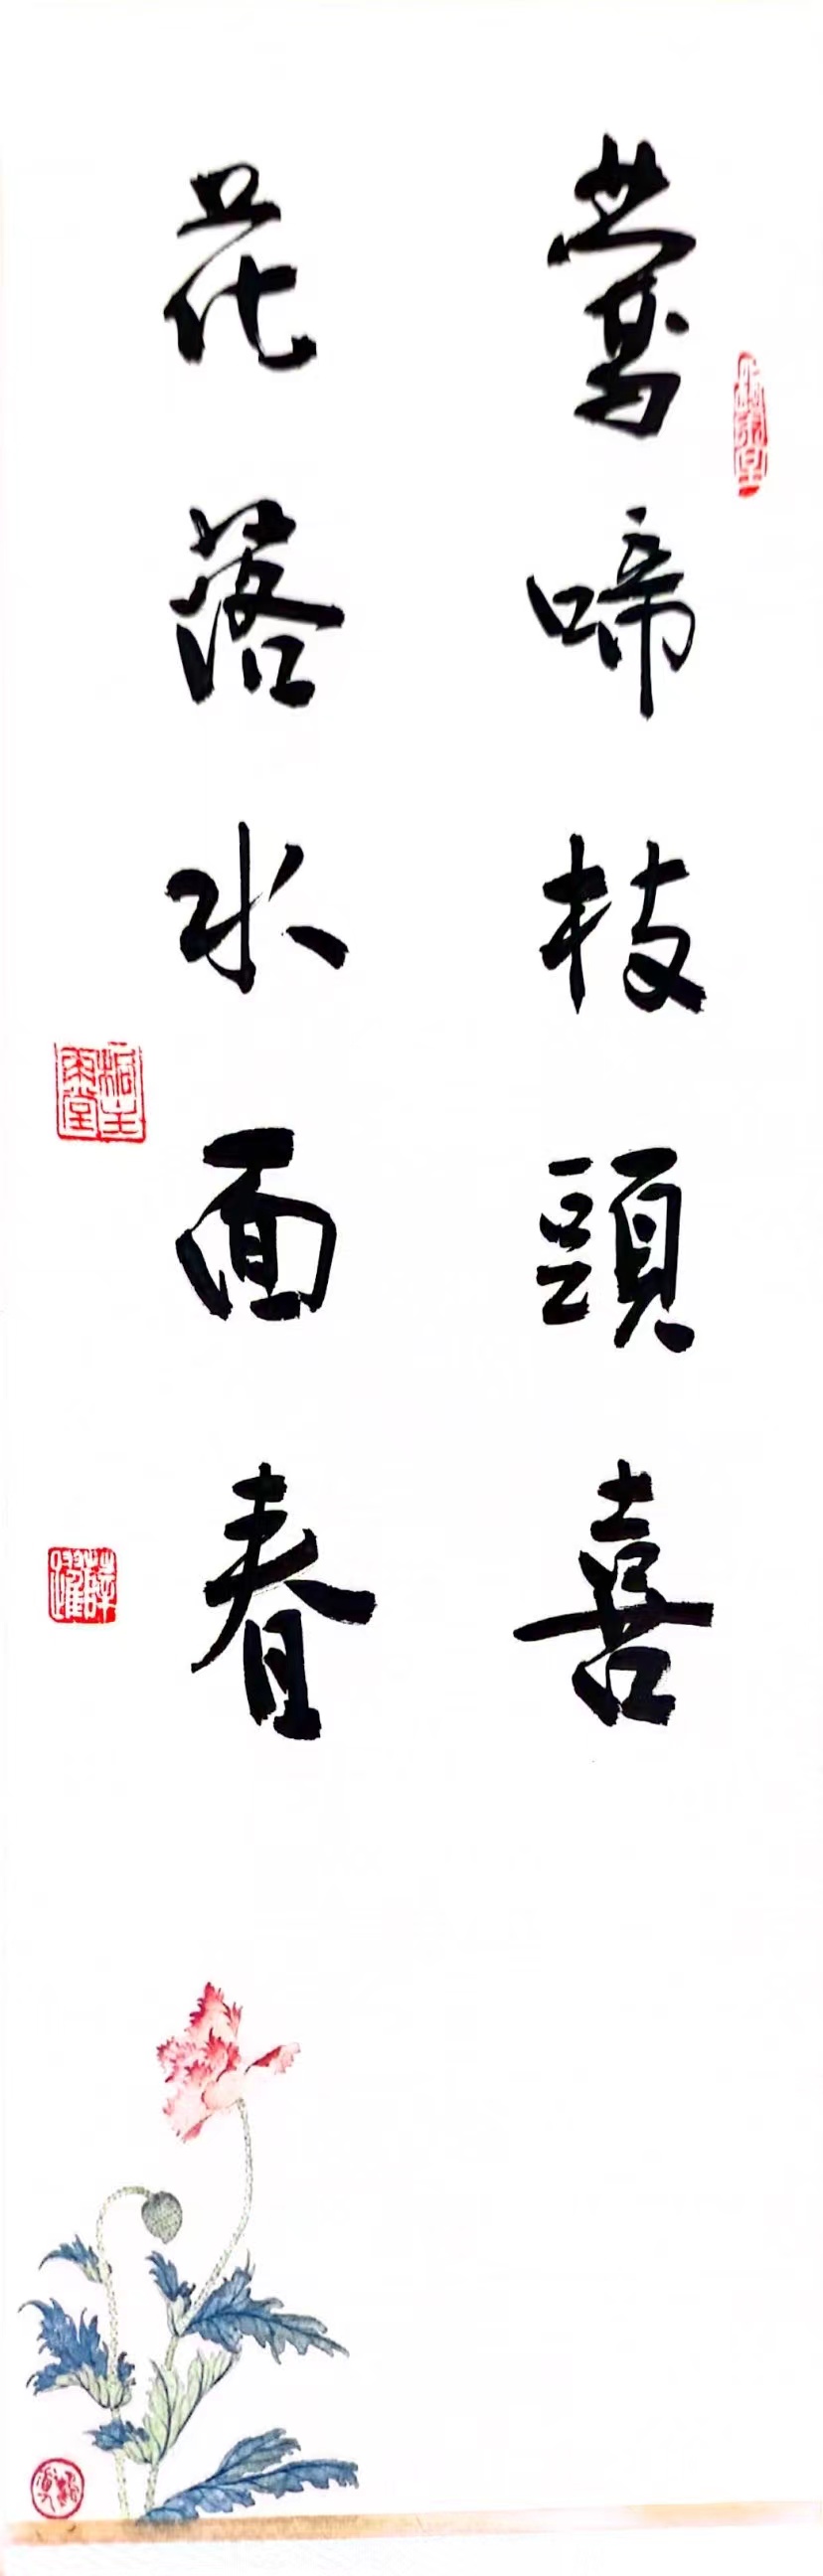 鶯啼枝頭喜
花落水面春